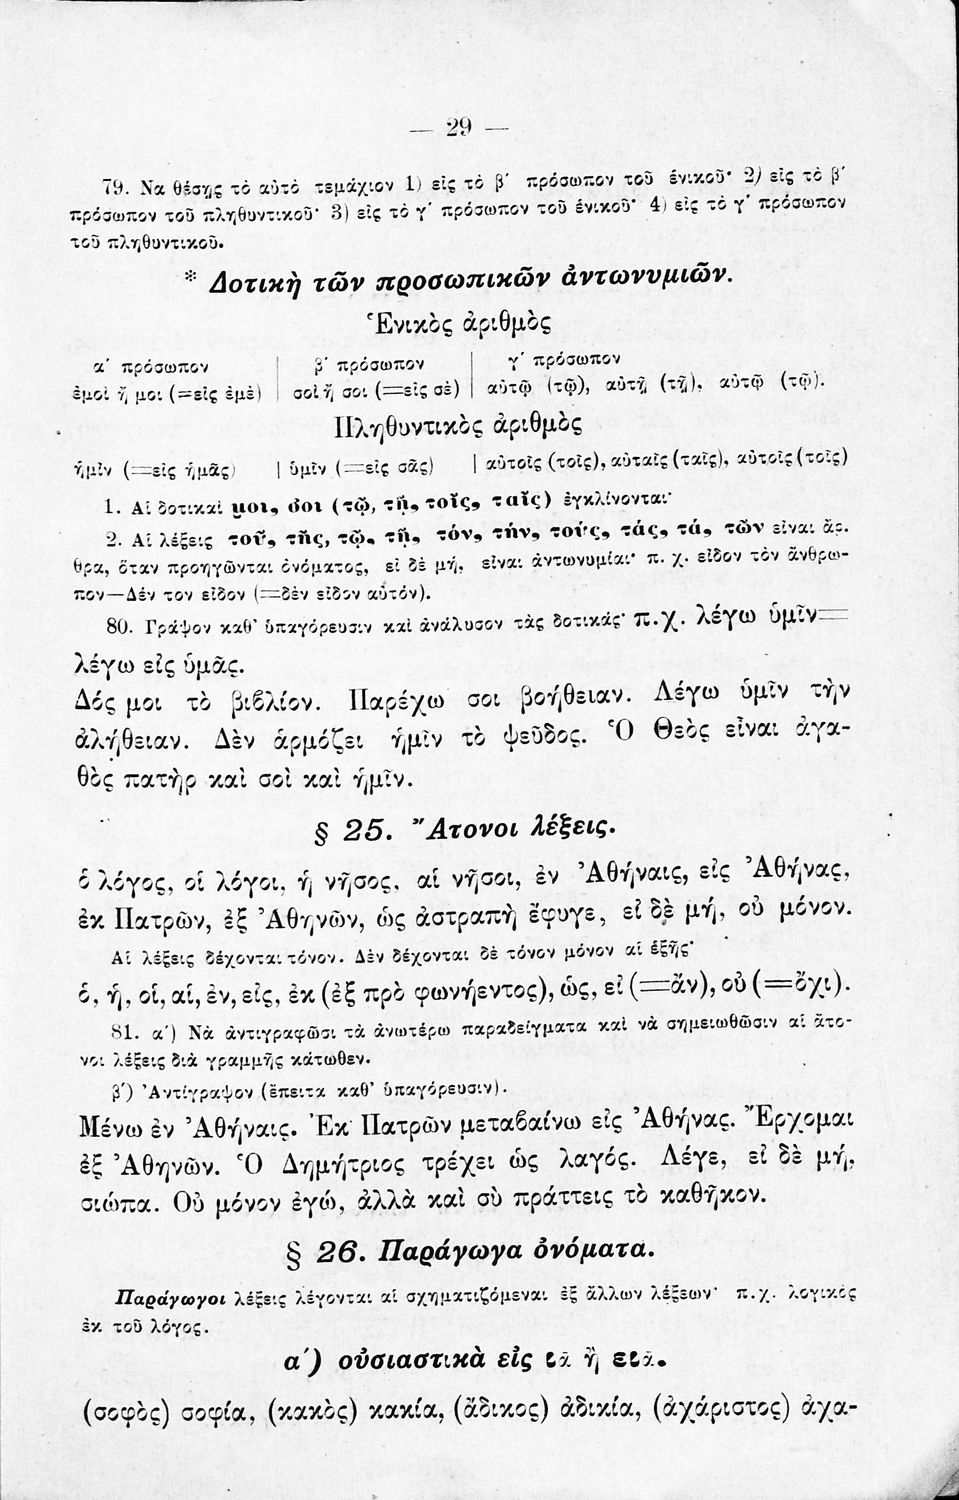 — 29 —
79. Να θέσῃς τὸ αὐτὸ τεμάχιον 1) εἰς τὸ β΄ πρόσωπον τοῦ ἑνικοῦ· 2) εἰς τὸ β΄
πρόσωπον τοῦ πληθυντικοῦ· 3) εἰς τὸ γ΄ πρόσωπον τοῦ ἑνικοῦ· 4) εἰς τὸ γ΄ πρόσωπον
τοῦ πληθυντικοῦ.
* Δοτικὴ τῶν προσωπικῶν ἀντωνυμιῶν.
Ἑνικὸς ἀριθμὸς
α΄ πρόσωπον | β΄ πρόσωπον | γ΄ πρόσωπον
ἐμοὶ ἤ μοι (=εἰς ἐμὲ) | σοὶ ἤ σοι (=εἰς σὲ) | αὐτῷ (τῷ), αὐτῇ (τῇ), αὐτῷ (τῷ).
Πληθυντικὸς ἀριθμὸς
ἡμῖν (=εἰς ἡμᾶς) | ὑμῖν (=εἰς σᾶς) | αὐτοῖς (τοῖς), αὐταῖς (ταῖς), αὐτοῖς (τοῖς)
1. Αἱ δοτικαὶ μοι, σοι (τῷ, τῇ, τοῖς, ταῖς) ἐγκλίνονται·
2. Αἱ λέξεις τοῦ, τῆς, τῷ, τῇ, τόν, τήν, τούς, τάς, τά, τῶν εἶναι ἄρ-
θρα, ὅταν προηγῶνται ὀνόματος, εἰ δὲ μή, εἶναι ἀντωνυμίαι· π. χ. εἶδον τὸν ἄνθρω-
πον—Δέν τον εἶδον (=δὲν εἶδον αὐτόν).
80. Γράψον καθ' ὑπαγόρευσιν καὶ ἀνάλυσον τὰς δοτικάς· π.χ. λέγω ὑμῖν=
λέγω εἰς ὑμᾶς.
Δός μοι τὸ βιβλίον. Παρέχω σοι βοήθειαν. Λέγω ὑμῖν τὴν
ἀλήθειαν. Δὲν ἁρμόζει ἡμῖν τὸ ψεῦδος. Ὁ Θεὸς εἶναι ἀγα-
θὸς πατὴρ καὶ σοὶ καὶ ἡμῖν.
§ 25. Ἄτονοι λέξεις.
ὁ λόγος, οἱ λόγοι, ἡ νῆσος, αἱ νῆσοι, ἐν Ἀθήναις, εἰς Ἀθήνας,
ἐκ Πατρῶν, ἐξ Ἀθηνῶν, ὡς ἀστραπὴ ἔφυγε, εἰ δὲ μή, οὐ μόνον.
Αἱ λέξεις δέχονται τόνον. Δὲν δέχονται δὲ τόνον μόνον αἱ ἑξῆς·
ὁ, ἡ, οἱ, αἱ, ἐν, εἰς, ἐκ (ἐξ πρὸ φωνήεντος), ὡς, εἰ (=ἄν), οὐ (=ὄχι).
81. α΄) Νὰ ἀντιγραφῶσι τὰ ἀνωτέρω παραδείγματα καὶ νὰ σημειωθῶσιν αἱ ἄτο-
νοι λέξεις διὰ γραμμῆς κάτωθεν.
β΄) Ἀντίγραψον (ἔπειτα καθ' ὑπαγόρευσιν).
Μένω ἐν Ἀθήναις. Ἐκ Πατρῶν μεταβαίνω εἰς Ἀθήνας. Ἔρχομαι
ἐξ Ἀθηνῶν. Ὁ Δημήτριος τρέχει ὡς λαγός. Λέγε, εἰ δὲ μή,
σιώπα. Οὐ μόνον ἐγώ, ἀλλὰ καὶ σὺ πράττεις τὸ καθῆκον.
§ 26. Παράγωγα ὀνόματα.
Παράγωγοι λέξεις λέγονται αἱ σχηματιζόμεναι ἐξ ἄλλων λέξεων· π.χ. λογικὸς
ἐκ τοῦ λόγος.
α΄) οὐσιαστικὰ εἰς ια ἢ εια.
(σοφὸς) σοφία, (κακὸς) κακία, (ἄδικος) ἀδικία, (ἀχάριστος) ἀχα-